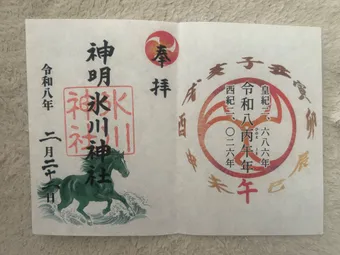 子丑寅卯辰巳午未申酉戌亥
皇紀二、六八六年
令和八丙午年
西紀二、〇二六年
奉拝
神明氷川神社
氷川神社
令和八年
二月二十一日